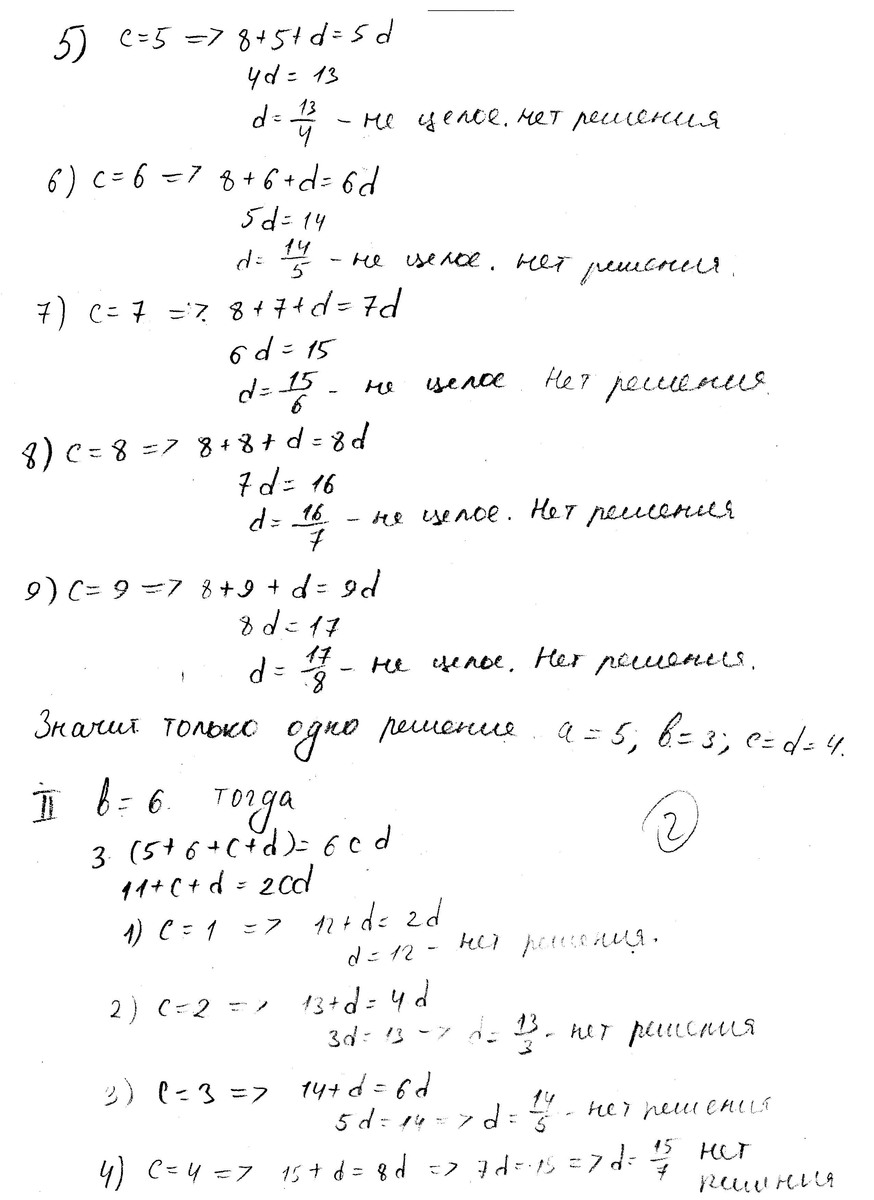 5) c=5 => 8+5+d=5d
4d=13
d=13/4 - не целое. нет решения
6) c=6 => 8+6+d=6d
5d=14
d=14/5 - не целое. нет решения.
7) c=7 => 8+7+d=7d
6d=15
d=15/6 - не целое Нет решения
8) c=8 => 8+8+d=8d
7d=16
d=16/7 - не целое. Нет решения
9) c=9 => 8+9+d=9d
8d=17
d=17/8 - не целое. Нет решения.
Значит только одно решение a=5; b=3; c=d=4.
II b=6. тогда
2
3 (5+6+c+d)=6cd
11+c+d=2cd
1) c=1 => 12+d=2d
d=12 - нет решения.
2) c=2 => 13+d=4d
3d=13 -> d=13/3 - нет решения
3) c=3 => 14+d=6d
5d=14 => d=14/5 - нет решения
4) c=4 => 15+d=8d => 7d=15 => d=15/7 нет
решения